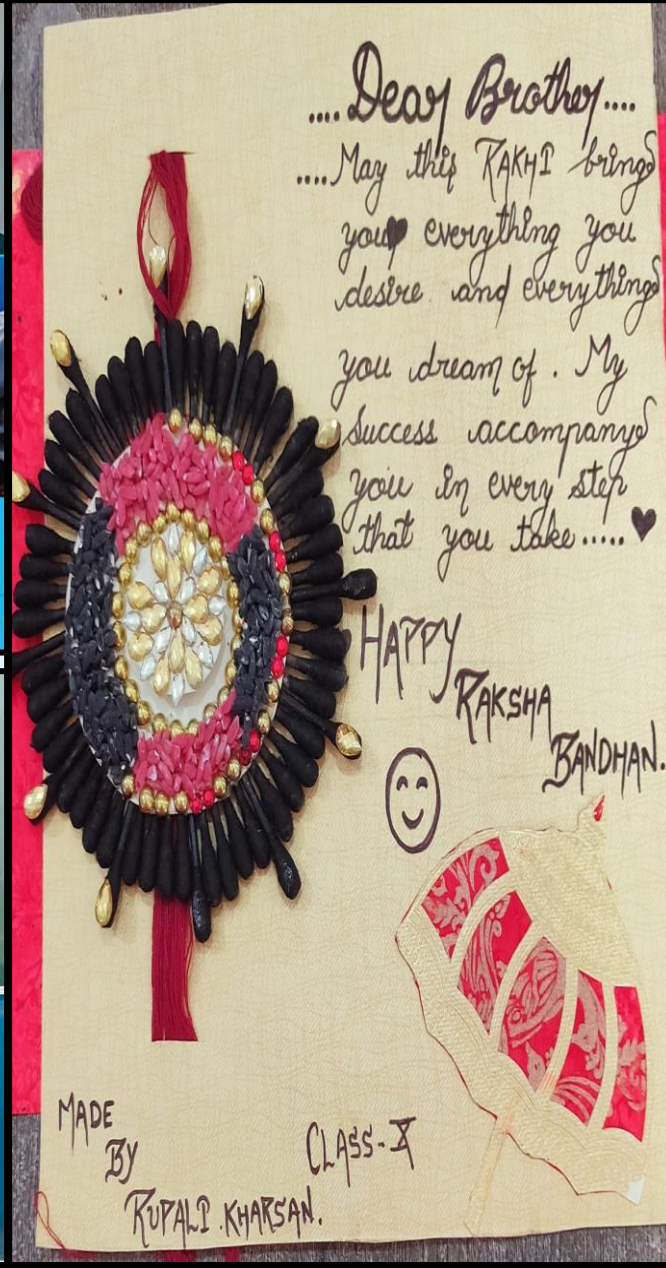 ....Dear Brother....
....May this RAKHI brings
you♥ everything you
desire and everythings
you dream of. My
Success accompanys
you in every step
that you take.....♥
HAPPY
RAKSHA
BANDHAN.
MADE
BY
RUPALI KHARSAN.
CLASS-X